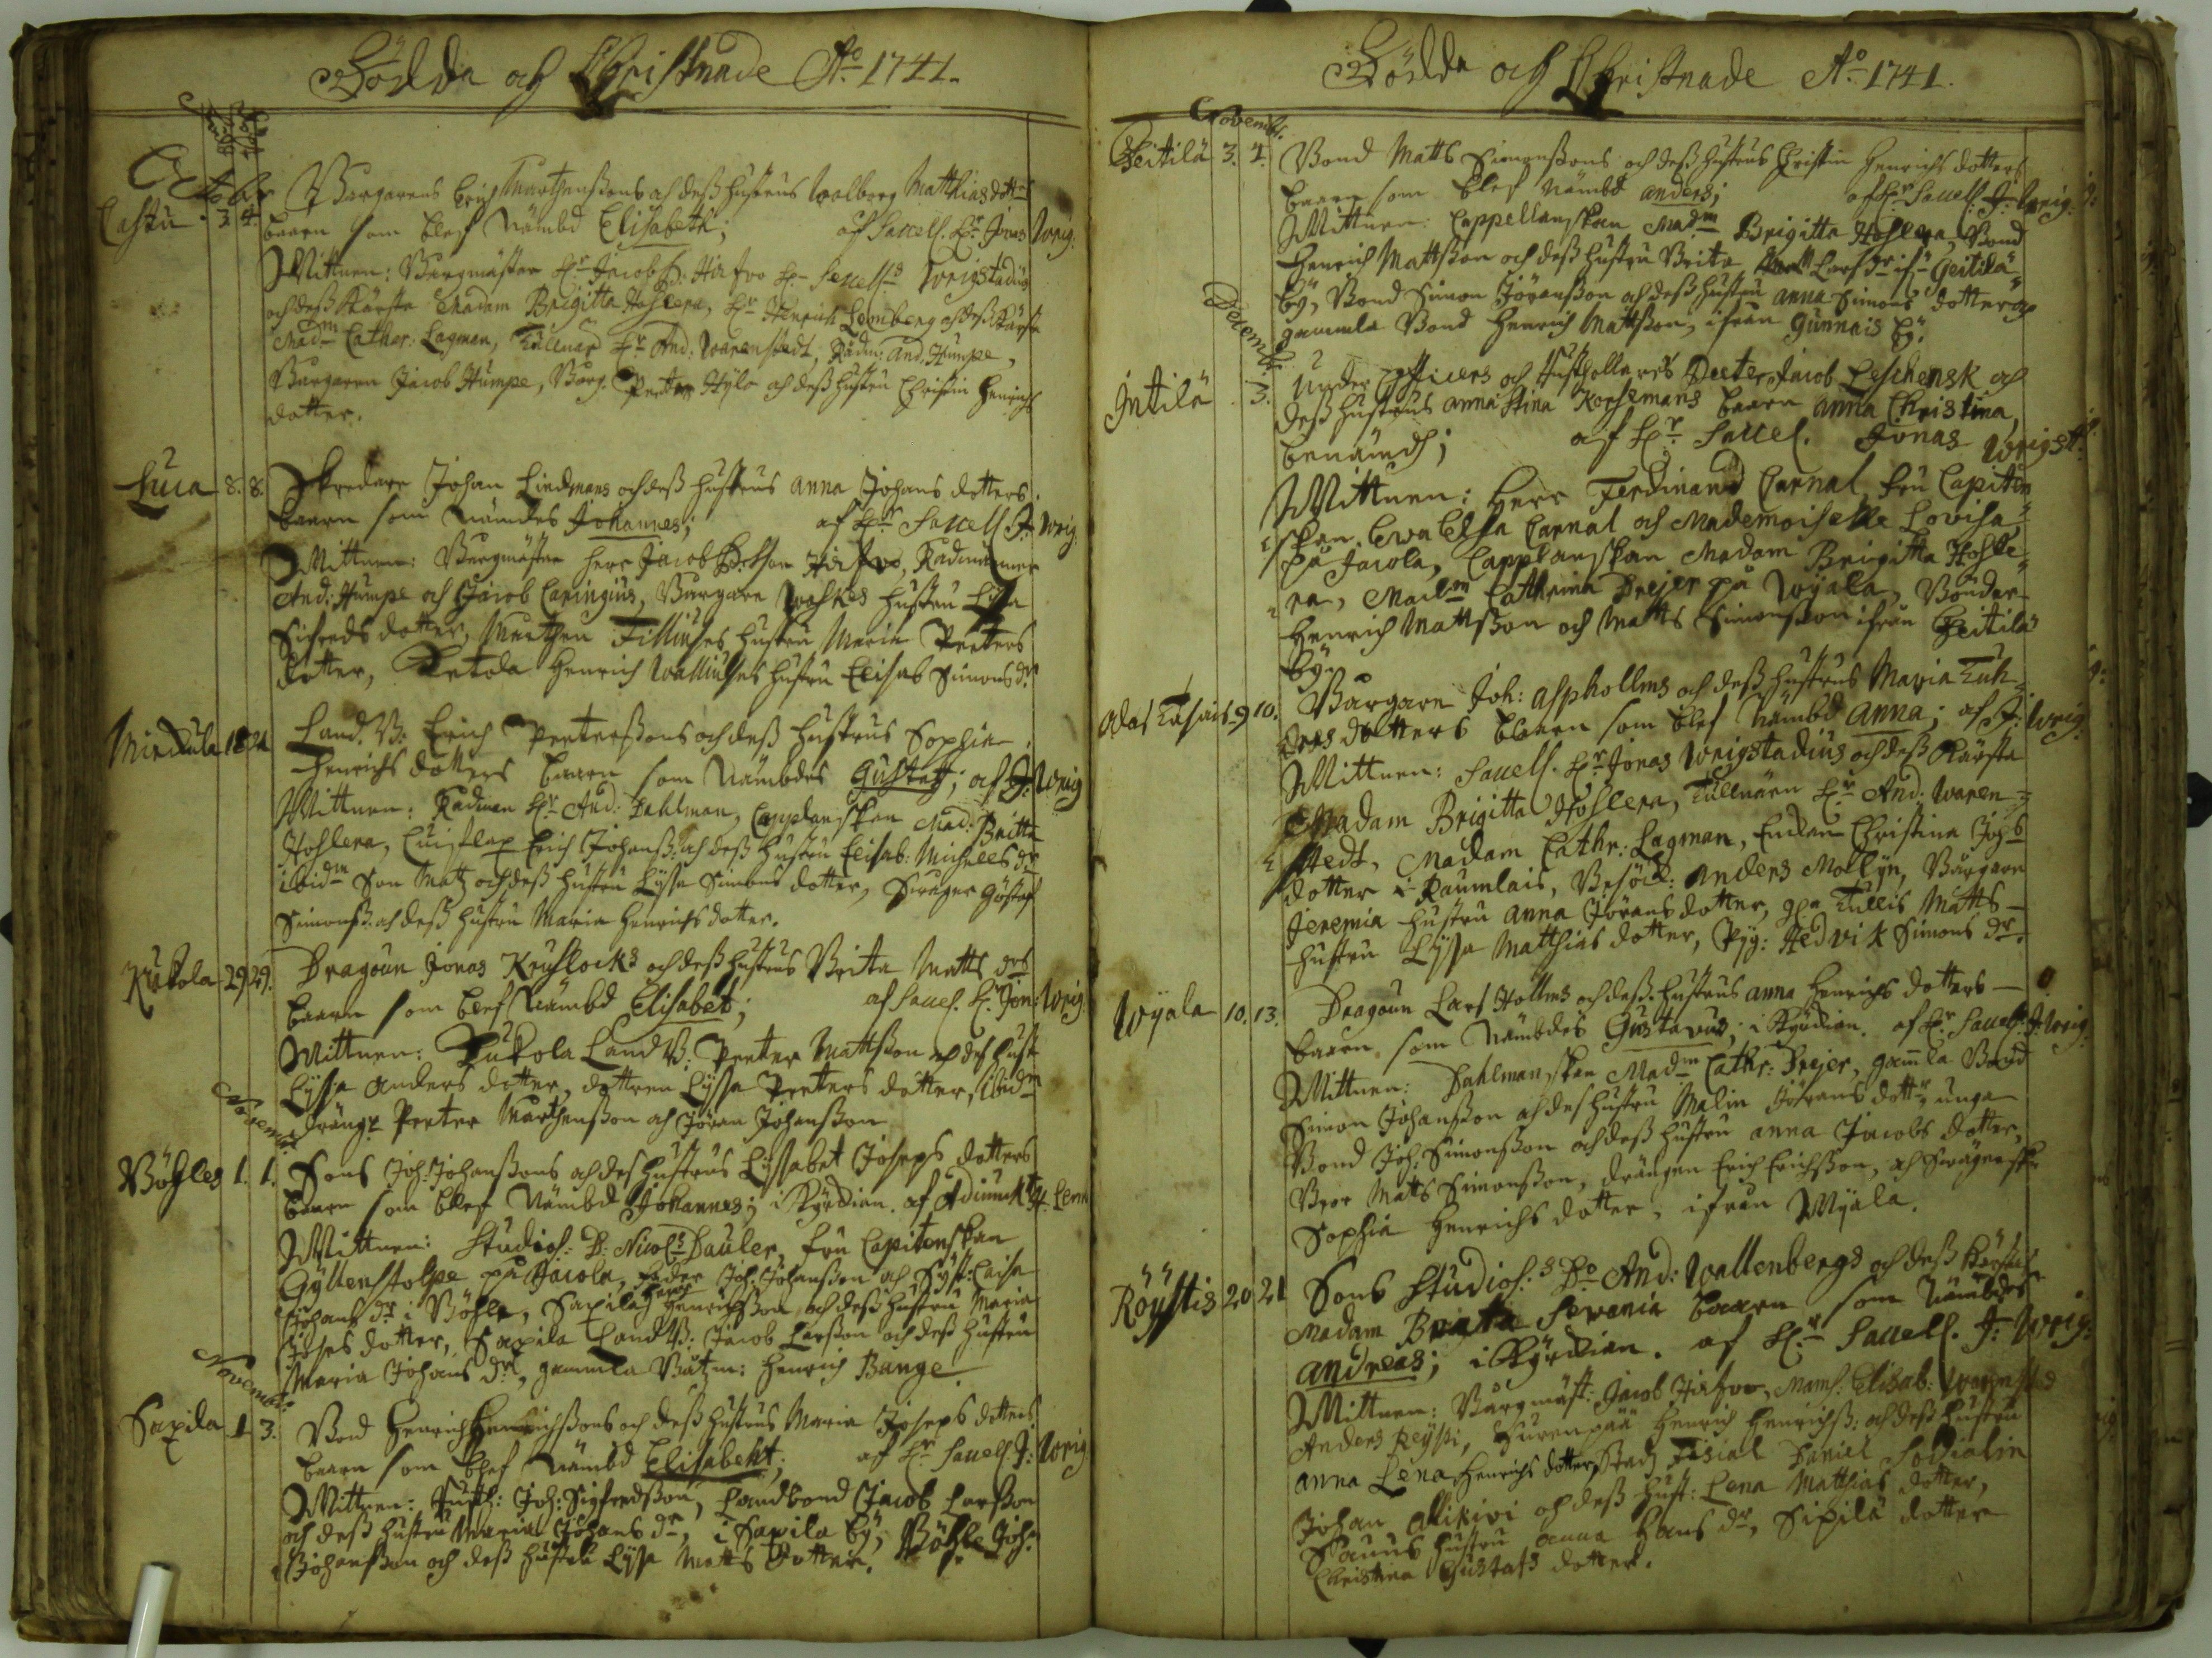 Födda och Christnade Ao 1741.
Octobr
Castu 3. 4. Borgarens Erich Marthenssons och dess hustrus Walborg Matthiasdotters
baarn som blef Nämbd Elisabeth; af Sacell. Hr Jonas Wrig.
Wittnen: Borgmästar Hr Jacob Hirfvo Hr Sacell. Wrigstadius
och dess Kärsta Madam Brigitta Hoslera, Hr Henrich Lemberg och dess Kärsta
Madm Cathar: Lagman, Tullnär Hr And: Warenstedt, Rådm: And. Humpe,
Borgaren Jacob Humpe, Borg. Petter Hylo och dess hustru Christin Henrichs
dotter.
Luca 8. 8. Skredare Johan Lindmans och dess hustrus Anna Johans dotters
baarn som Nämdes Johannes; af Hr Sacell J. Wrig.
Wittnen: Borgmästar Herr Jacob Hirfvo, Rådmänner
And: Humpe och Jacob Caringius, Borgare hustru Lisa
Sifreds dotter, Marthen hustru Maria Petters
dotter, Ketola Henrich Walliuses hustru Elisab Simons dr
Mickula 18 21 Land. B. Erich Petterssons och dess hustrus Sophia
Henrichs dotters baarn som Nämbdes Gustaf; af J. Wrig
Wittnen: Rådman Hr And: Dahlman, Capplanskan Mad: Britta
Hoslera, Erich Johanss: och dess hustru Elisab: Michells dr
ibidm Son Matz och dess hustru Lyssa Simons dotter, Swåger Göstaf
Simonss: och dess hustru Maria Henrichs dotter.
Kukola 29 29. Dragoun Jonas Kruslocks och dess hustrus Brita Matts drs
baarn som blef Nämbd Elisabet; af Sacel. Hr Jon: Wrig.
Wittnen: Kukola Land B. Petter Mattsson och des hust
Lyssa Anders dotter, dottren Lyssa Petters dotter, ibidm
drängr Petter Marthensson och Jöran Johansson
Novembr
Böhles 1. 1. Sons Joh: Johanssons och des hustrus Lyssabet Joseps dotters
baarn som blef Nämbd Johannes; i Kyrckian. af Adiunct H. Lem
Wittnen: Studios: D: Nicols Dauler, fru Capitenskan
Gyllenstolpe på Jacola, Fader Joh. Johansson och Syst: Caisa
Johans dr i Böhle, Saxilas Henr: Henrichsson och dess hustru Maria
Joseps dotter, Saxila Land B: Jacob Larsson och dess hustru
Maria Johans dr, gammla Båtzm: Henrich Bange
Novembr
Saxila 1 3. Bond Henrich Henrichssons och dess hustrus Maria Joseps dotters
baarn som blef Nämbd Elisabeht; af Hr Sacell J: Wrig
Wittnen: Rusth: Joh: Sigfredsson, Landbond Jacob Larsson
och dess hustru Maria Johans dr, i Saxila by, Böhle Joh:
Johansson och dess hustru Lyssa Matts dotter.
Födda och Christnade Ao 1741.
Novembr.
Geitilä 3. 4. Bond Matts Simonssons och dess hustrus Christin Henrichs dotters
baarn som blef Nämbd Anders; af Hr Sacell. J. Wrig:
Wittnen: Cappellanskan Madm Brigitta Hoslera, Bond
Henrich Mattsson och dess hustru Brita Lars dr ifr Geitilä
by, Bond Simon Jöransson och dess hustru Anna Simons dotter och
gammla Bond Henrich Mattsson, ifrån Gunnais by.
Decembr
Jntilä 3. Under Officers och Rusthollares Peter Jacob Leschensk och
dess hustrus Anna Stina Korsemans baarn Anna Christina,
benämd; af Hr Sacel. Jonas Wrigst.
Wittnen: Herr Ferdinand Carnal, fru Capiten
skan Ewa Elsa Carnal och Mademoiselle Lovisa
på Jacola, Capplanskan Madam Brigitta Hosle
ra, Madm Cathrina Drejer på Wyala, Bönder
Henrich Mattsson och Matts Simonsson ifrån Geitilä
by.
9 10. Borgare Joh: Aspholms och dess hustrus Maria
dotters baarn som blef Nämbd Anna; af J: Wrig.
Wittnen: Sacell. Hr Jonas Wrigstadius och dess Kärsta
Madam Brigitta Hoslera, Tullnären Hr And: Waren
stedt, Madam Cathr: Lagman, Enckan Christina Johs
dotter i Raumlais, Besök: Anders Mollyn, Borgaren
Jeremia hustru Anna Jörans dotter, Tullis Matts
hustru Lyssa Matthias dotter, Pyg: Hedvik Simons dr.
Wyala 10. 13. Dragoun Lars Hollms och dess hustrus Anna Henrichs dotters
baarn som Nämbdes Gustavus; i Kyrckian. af Hr Sacell. J. Wrig:
Wittnen: Dahlmanskan Madm Cathr: Drejer, gamla Bond
Simon Johansson och des hustru Malin Jörans dottr, unga
Bond Joh: Simonsson och dess hustru Anna Jacobs dotter,
Bror Matts Simonsson, drängen Erich Erichsson, och Swägerska
Sophia Henrichs dotter, ifrån Wyala.
Röyttis 20 21 Sons Studios: Do And: Wallenbergs och dess Kärstas
Madam Beata Serenia baarn som Nämbdes
Andreas; i Kyrckian. af Hr Sacell. J: Wrig:
Wittnen: Borgmäst: Jacob Hirfvo, Mams: Elisab: Warensted
Anders Reyssi, Henrich Henrichss: och dess hustru
Anna Lena Henrichs dotter, Stadz Fiscial Daniel
Johan Allikivi och dess hust: Lena Matthias dotter,
hustru Anna Hans dr, Sipilä dotter
Christina Gustafs dotter.